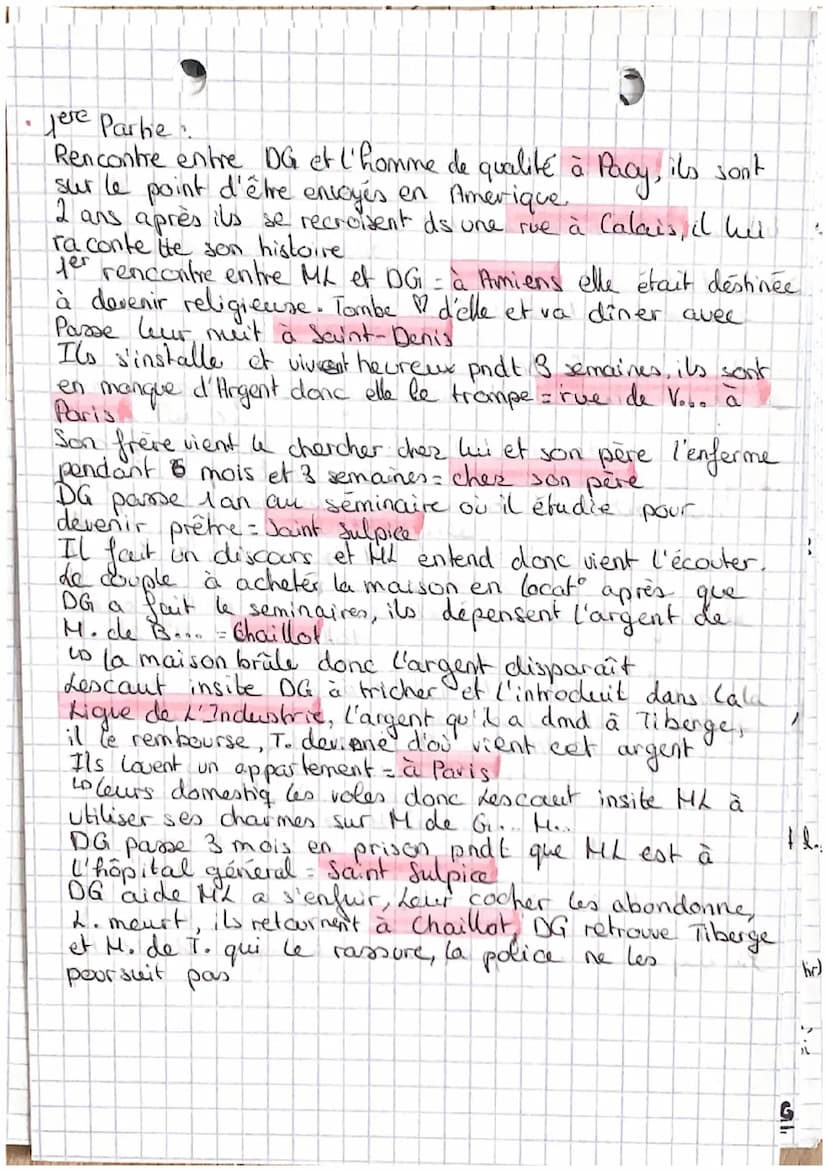 . 1ere Partie :
Rencontre entre DG et l'homme de qualité à Pacy, ils sont
sur le point d'être envoyés en Amerique.
2 ans après ils se recroisent ds une rue à Calais, il lui
raconte tte son histoire
1er rencontre entre ML et DG = à Amiens elle était déstinée
à devenir religieuse. Tombe ♡ d'elle et va dîner avec
Passe leur nuit à Saint-Denis
Ils s'installe et vivent heureux pndt 3 semaines, ils sont
en manque d'Argent donc elle le trompe = rue de V... à
Paris
Son frère vient le chercher chez lui et son père l'enferme
pendant 6 mois et 3 semaines = chez son père
DG passe 1 an au séminaire où il étudie pour
devenir prêtre = Saint Sulpice
Il fait un discours et ML entend donc vient l'écouter.
Le couple à achetés la maison en locat° après que
DG a fait le seminaires, ils dépensent l'argent de
M. de B... = Chaillot
↳ la maison brûle donc l'argent disparaît
Lescaut insite DG à tricher et l'introduit dans la
Ligue de L'Industrie, l'argent qu'il a dmd à Tiberge,
il le rembourse, T. deviene d'où vient cet argent
Ils louent un appartement = à Paris
↳ leurs domestiq les voles donc Lescaut insite ML à
utiliser ses charmes sur M de G... M..
DG passe 3 mois en prison pndt que ML est à
L'hôpital général = Saint Sulpice
DG aide ML a s'enfuir, Leur cocher les abandonne,
L. meurt, ils retournent à Chaillot, DG retrouve Tiberge
et M. de T. qui le rassure, la police ne les
poursuit pas